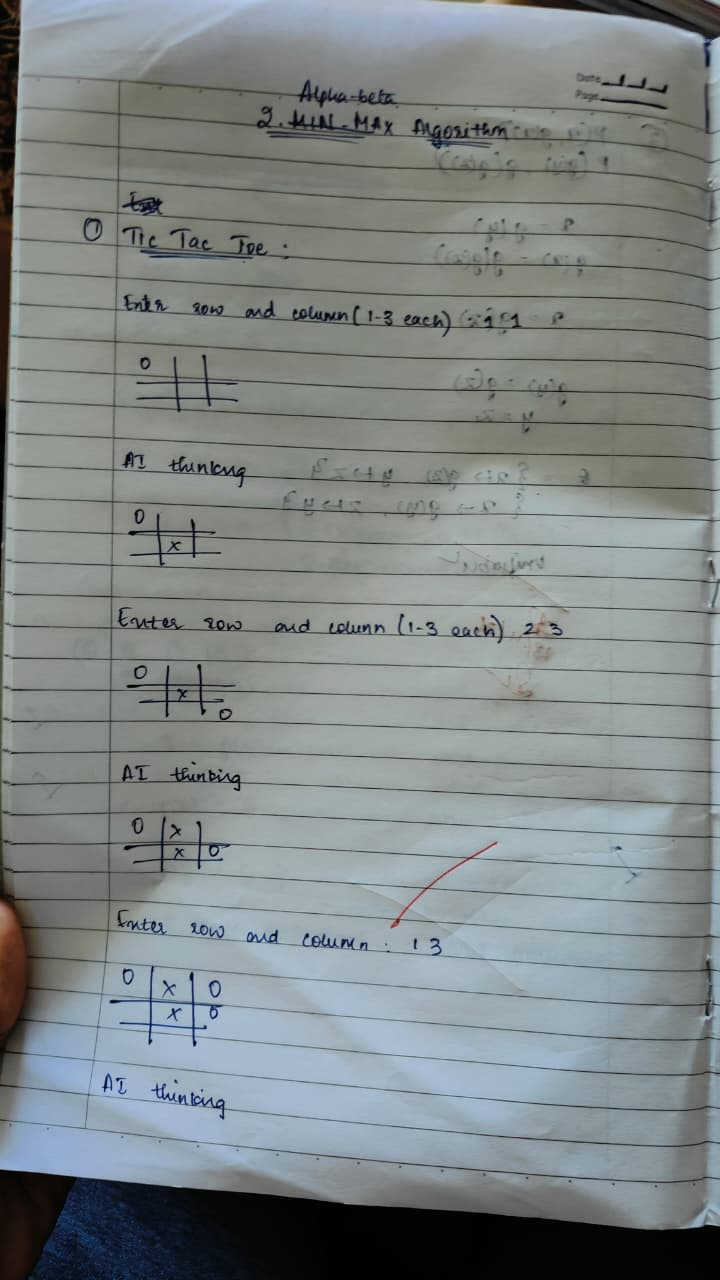 Date
Page
Alpha-beta
2. MIN-MAX Algorithm
① Tic Tac Toe :
Enter row and column (1-3 each) : 1 1
O
AI thinking
O
x
Enter row and column (1-3 each) 2 3
O
x
O
AI thinking
O x
x O
Enter row and column : 1 3
O x O
x O
AI thinking